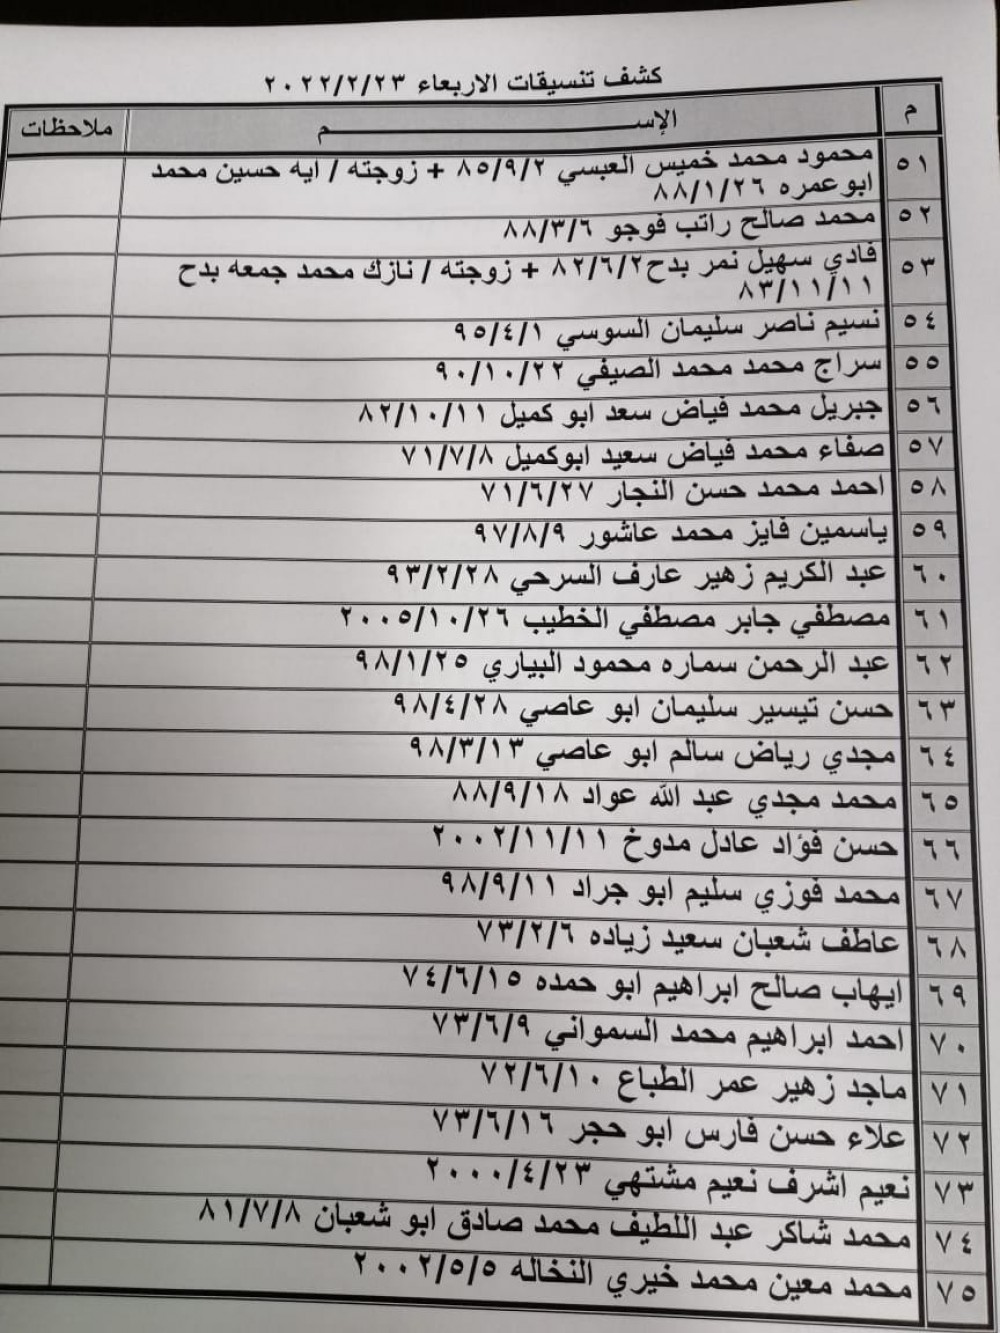 كشف تنسيقات الاربعاء ٢٠٢٢/٢/٢٣
م الإســــــــــــم ملاحظات
٥١ محمود محمد خميس العبسي ٨٥/٩/٢ + زوجته / ايه حسين محمد
ابوعمره ٨٨/١/٢٦
٥٢ محمد صالح راتب فوجو ٨٨/٣/٦
٥٣ فادي سهيل نمر بدح٨٢/٦/٢ + زوجته / نازك محمد جمعه بدح
٨٣/١١/١١
٥٤ نسيم ناصر سليمان السوسي ٩٥/٤/١
٥٥ سراج محمد محمد الصيفي ٩٠/١٠/٢٢
٥٦ جبريل محمد فياض سعد ابو كميل ٨٢/١٠/١١
٥٧ صفاء محمد فياض سعيد ابوكميل ٧١/٧/٨
٥٨ احمد محمد حسن النجار ٧١/٦/٢٧
٥٩ ياسمين فايز محمد عاشور ٩٧/٨/٩
٦٠ عبد الكريم زهير عارف السرحي ٩٣/٢/٢٨
٦١ مصطفي جابر مصطفي الخطيب ٢٠٠٥/١٠/٢٦
٦٢ عبد الرحمن سماره محمود البياري ٩٨/١/٢٥
٦٣ حسن تيسير سليمان ابو عاصي ٩٨/٤/٢٨
٦٤ مجدي رياض سالم ابو عاصي ٩٨/٣/١٣
٦٥ محمد مجدي عبد الله عواد ٨٨/٩/١٨
٦٦ حسن فؤاد عادل مدوخ ٢٠٠٢/١١/١١
٦٧ محمد فوزي سليم ابو جراد ٩٨/٩/١١
٦٨ عاطف شعبان سعيد زياده ٧٣/٢/٦
٦٩ ايهاب صالح ابراهيم ابو حمده ٧٤/٦/١٥
٧٠ احمد ابراهيم محمد السمواني ٧٣/٦/٩
٧١ ماجد زهير عمر الطباع ٧٢/٦/١٠
٧٢ علاء حسن فارس ابو حجر ٧٣/٦/١٦
٧٣ نعيم اشرف نعيم مشتهي ٢٠٠٠/٤/٢٣
٧٤ محمد شاكر عبد اللطيف محمد صادق ابو شعبان ٨١/٧/٨
٧٥ محمد معين محمد خيري النخاله ٢٠٠٢/٥/٥